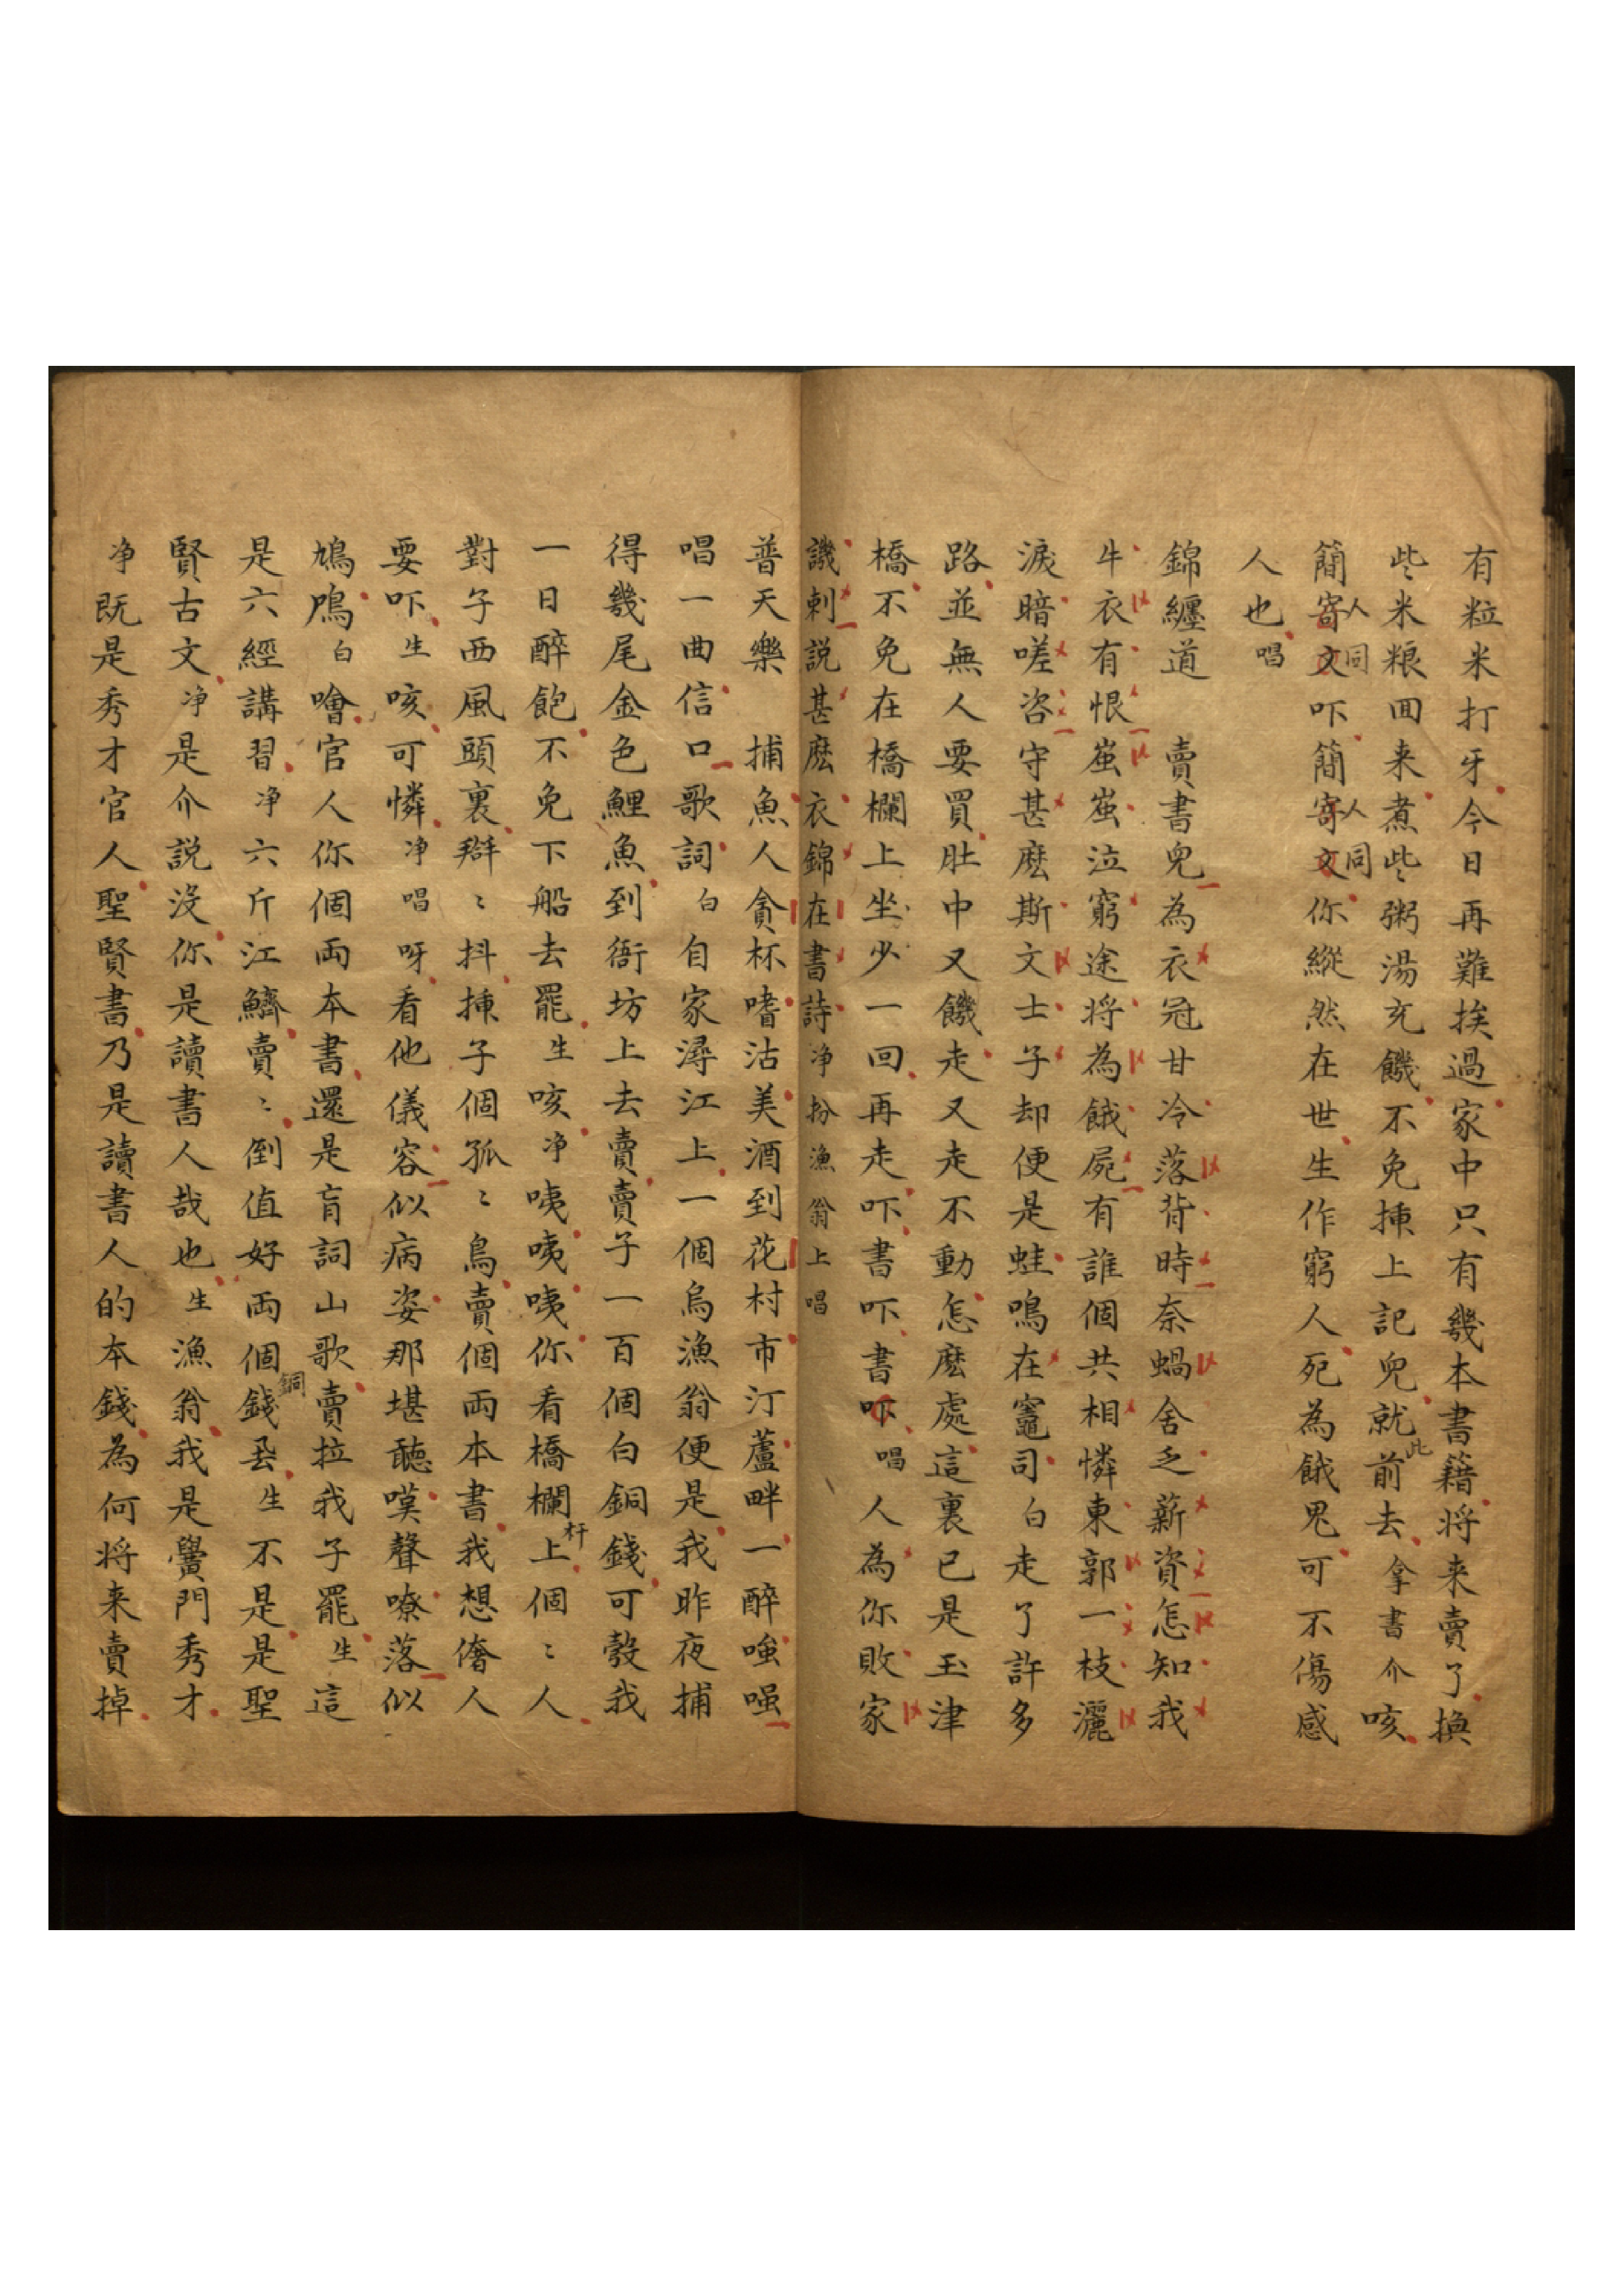 有粒米打牙今日再難挨過家中只有幾本書籍将来賣了換
些米粮囬来煮些粥湯充饑不免揷上記兒就此前去拿書介咳
簡寄人文同吓簡寄人文同你縱然在世生作窮人死為餓鬼可不傷感
人也唱
錦纏道　賣書兒為衣冠甘冷落背時奈蝸舍乏薪資怎知我
牛衣有恨蚩蚩泣窮途将為餓屍有誰個共相憐東郭一枝灑
淚暗嗟咨守甚麽斯文士子却便是蛙鳴在竈司白走了許多
路並無人要買肚中又饑走又走不動怎麽處這裏已是玉津
橋不免在橋欄上坐少一回再走吓書吓書吓唱人為你敗家
譏刺説甚麽衣錦在書詩净扮漁翁上唱
普天樂　捕魚人貪杯嗜沽美酒到花村市汀蘆畔一醉嗤嗤
唱一曲信口歌詞白自家潯江上一個烏漁翁便是我昨夜捕
得幾尾金色鯉魚到衙坊上去賣賣子一百個白銅錢可彀我
一日醉飽不免下船去罷生咳净咦咦咦你看橋欄杆上個〻人
對子西風頭裏搿〻抖揷子個孤〻鳥賣個両本書我想偺人
要吓生咳可憐净唱呀看他儀容似病姿那堪聽嘆聲嘹落似
鳩鳲白噲官人你個両本書還是肓詞山歌賣拉我子罷生這
是六經講習净六斤江鱭賣〻倒值好両個銅錢厾生不是是聖
賢古文净是介説没你是讀書人哉也生漁翁我是黌門秀才
净既是秀才官人聖賢書乃是讀書人的本錢為何将来賣掉